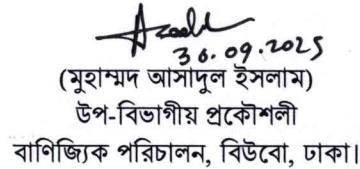 30.09.2025
(মুহাম্মদ আসাদুল ইসলাম)
উপ-বিভাগীয় প্রকৌশলী
বাণিজ্যিক পরিচালন, বিউবো, ঢাকা।